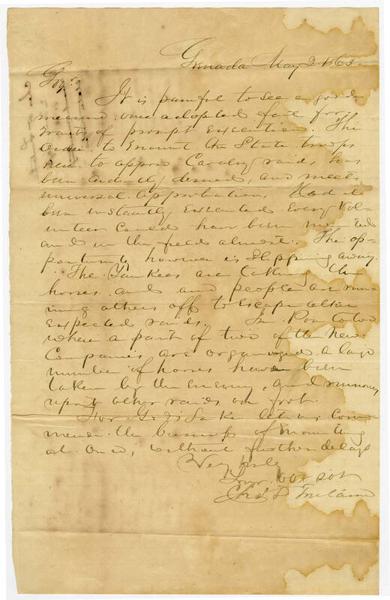 Grenada May 2 1863
It is painful to see a good
measure once adopted fail for
want of prompt execution. The
order to mount the State troops
so as to oppose Cavalry raids, has
been ardently desired, and meets
universal approbation. Had it
been instantly executed every Vol-
unteer could have been mounted
and in the field almost. The op-
portunity however is slipping away.
The Yankees are taking the
horses and people are run-
ning others off to escape other
expected raids. In Pontotoc
where a part of two of the New
Companies are organized a large
number of horses have been
taken by the enemy, and
upon other raids on foot.
For sake let us com-
mence the business of mounting
at once, without further delay
Very truly
Your